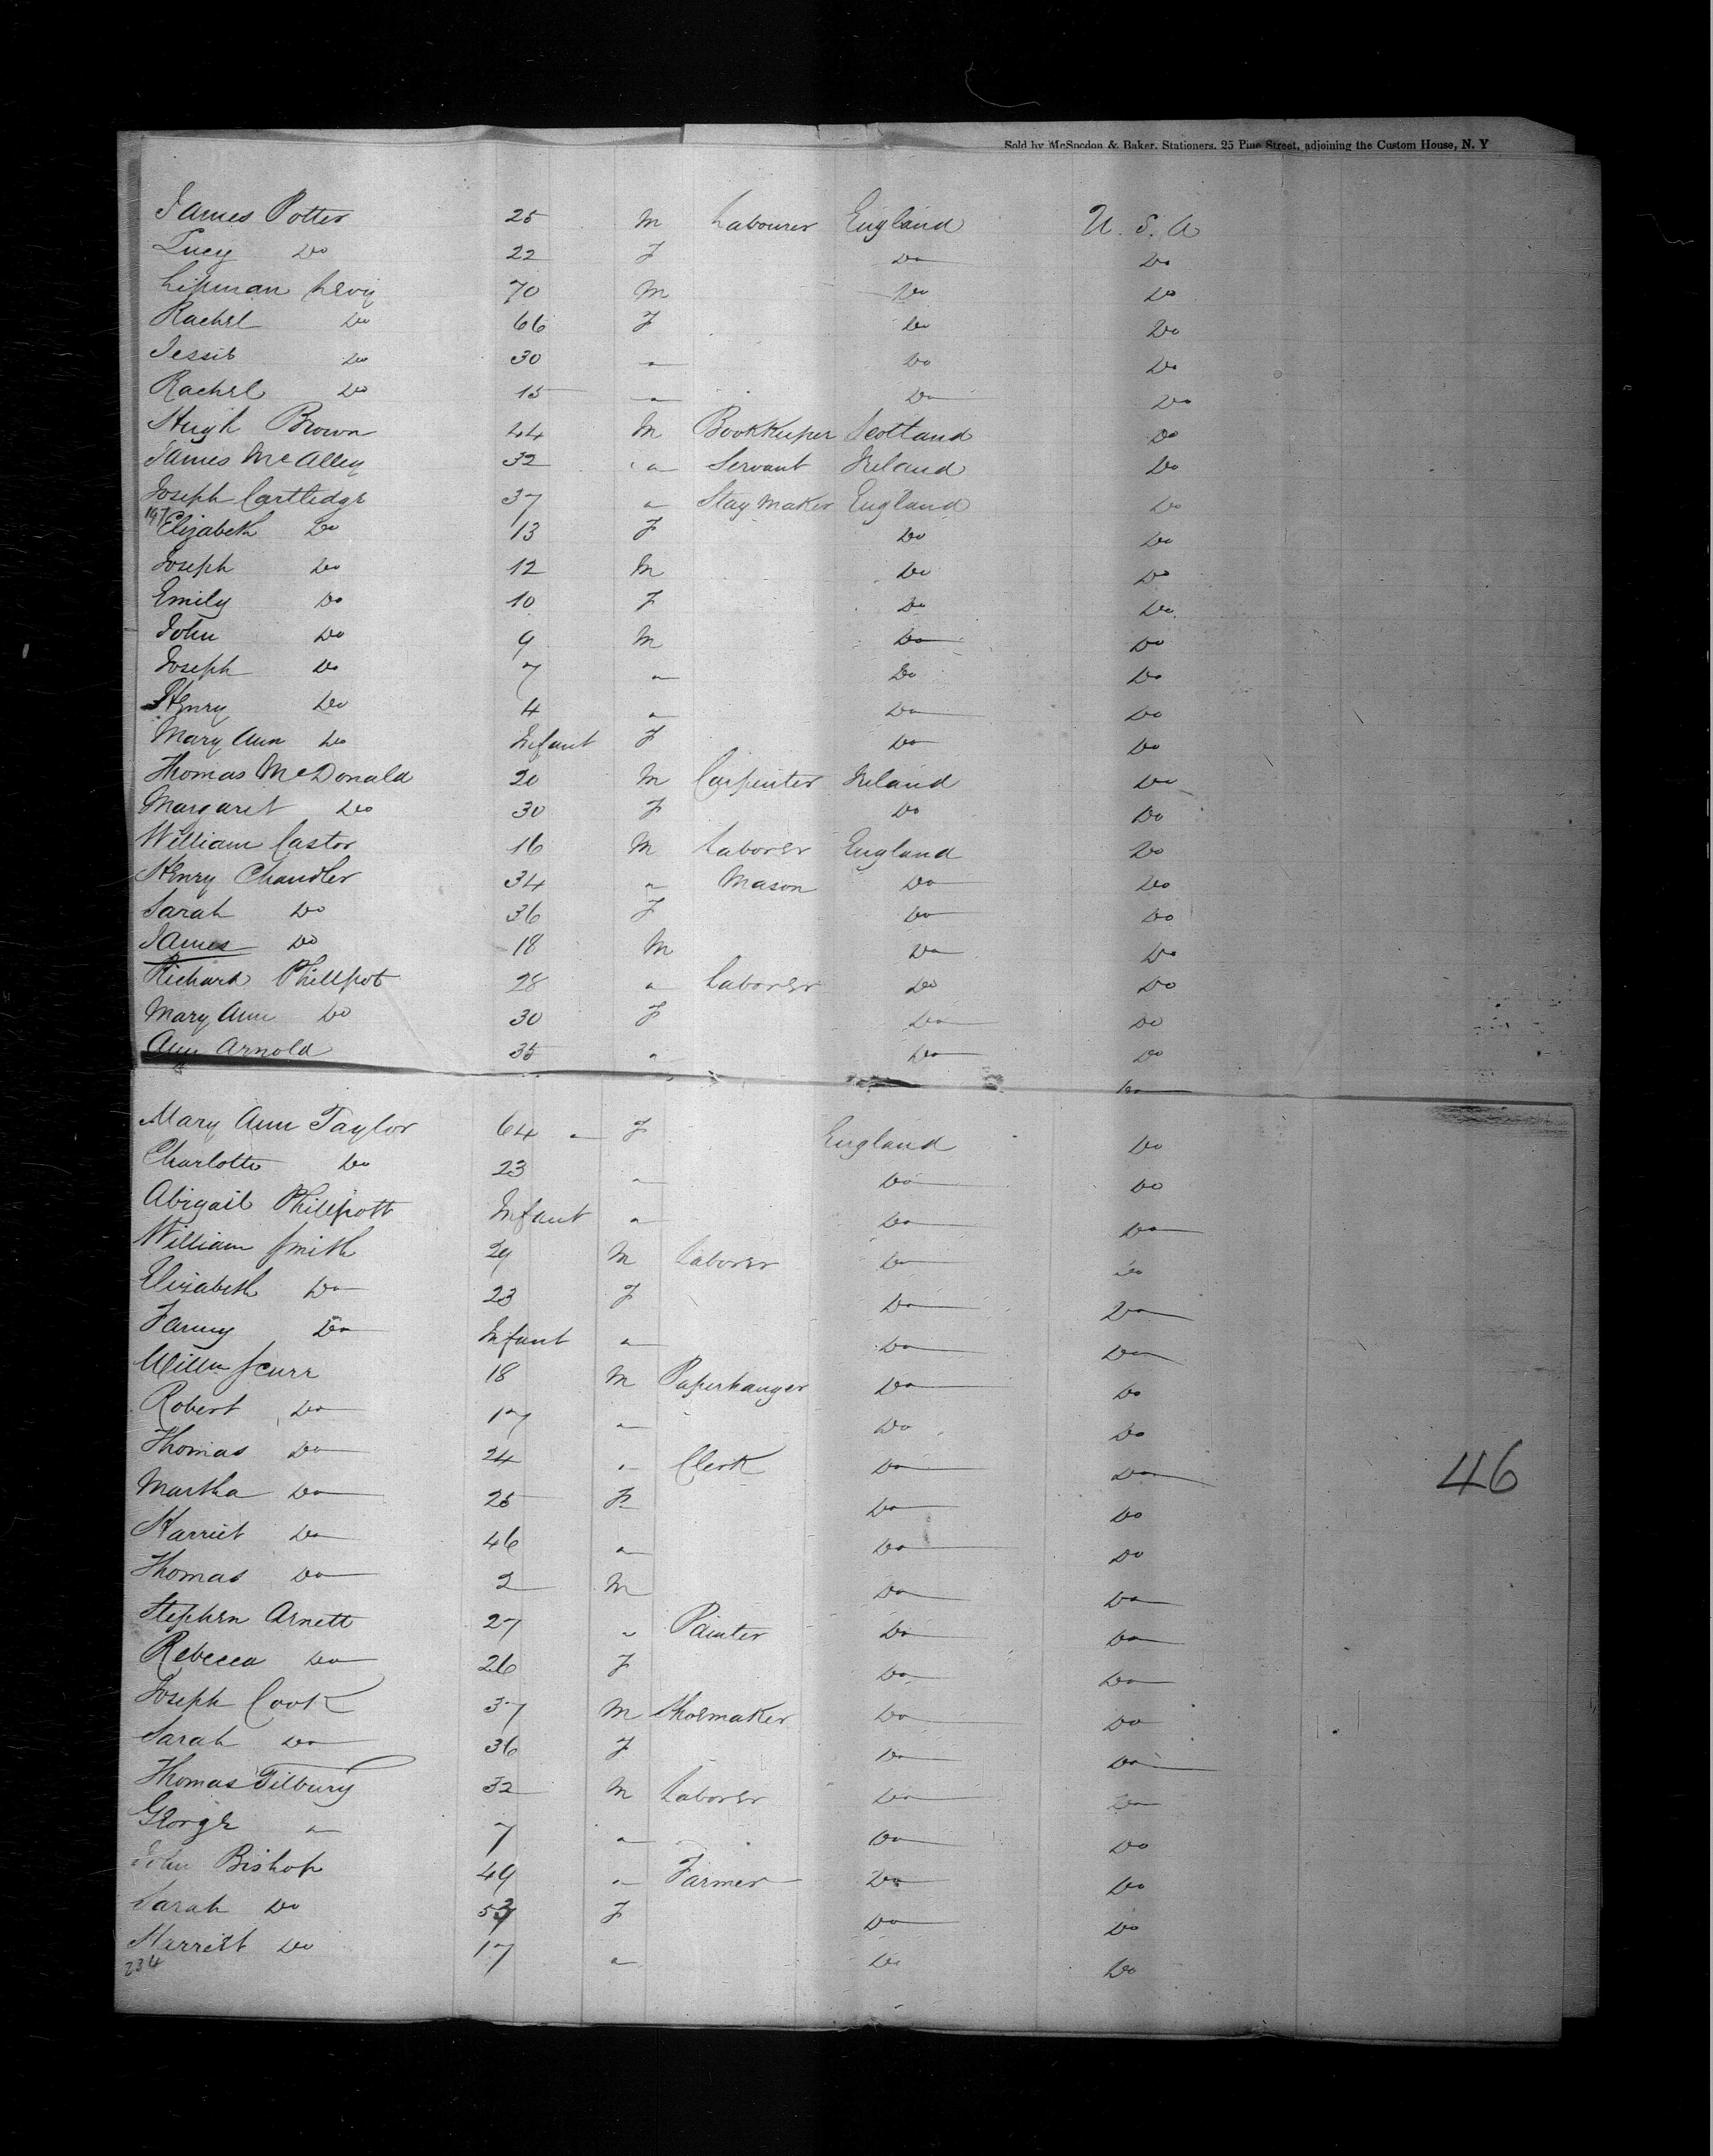 Sold by McSpedon & Baker, Stationers, 25 Pine Street, adjoining the Custom House, N. Y
James Potter 25 M Labourer England U. S. A
Lucy Do 22 F Do Do
Lipman Levy 70 M Do Do
Rachel Do 66 F Do Do
Jessie Do 30 " Do Do
Rachel Do 15 " Do Do
Hugh Brown 44 M BookKeeper Scotland Do
James McAlley 32 " Servant Ireland Do
Joseph Cartledge 37 " Stay Maker England Do
197 Elizabeth Do 13 F Do Do
Joseph Do 12 M Do Do
Emily Do 10 F Do Do
John Do 9 M Do Do
Joseph Do 7 " Do Do
Henry Do 4 " Do Do
Mary Ann Do Infant F Do Do
Thomas McDonald 20 M Carpenter Ireland Do
Margaret Do 30 F Do Do
William Castor 16 M Laborer England Do
Henry Chandler 34 " Mason Do Do
Sarah Do 36 F Do Do
James Do 18 M Do Do
Richard Phillpot 28 " Laborer Do Do
Mary Ann Do 30 F Do Do
Ann Arnold 35 " Do Do
Do
Mary Ann Taylor 64 " F England Do
Charlotte Do 23 " Do Do
Abigail Phillpott Infant " Do Do
William Smith 29 M Laborer Do Do
Elizabeth Do 23 F Do Do
Fanny Do Infant " Do Do
Willm Scurr 18 M Paperhanger Do Do
Robert Do 17 " Do Do
Thomas Do 24 " Clerk Do Do
46
Martha Do 25 F Do Do
Harriet Do 46 " Do Do
Thomas Do 2 M Do Do
Stephen Arnett 27 " Painter Do Do
Rebecca Do 26 F Do Do
Joseph Cook 37 M Shoemaker Do Do
Sarah Do 36 F Do Do
Thomas Tilbury 32 M Laborer Do Do
George " 7 " Do Do
John Bishop 49 " Farmer Do Do
Sarah Do F Do Do
Harriett Do 17 " Do Do
234